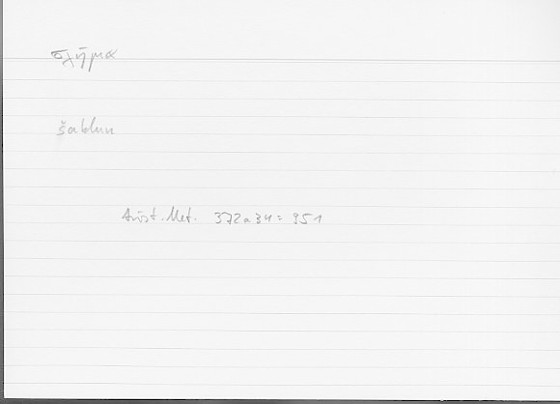 σχῆμα
šablun
Arist. Met. 372a34 = 951